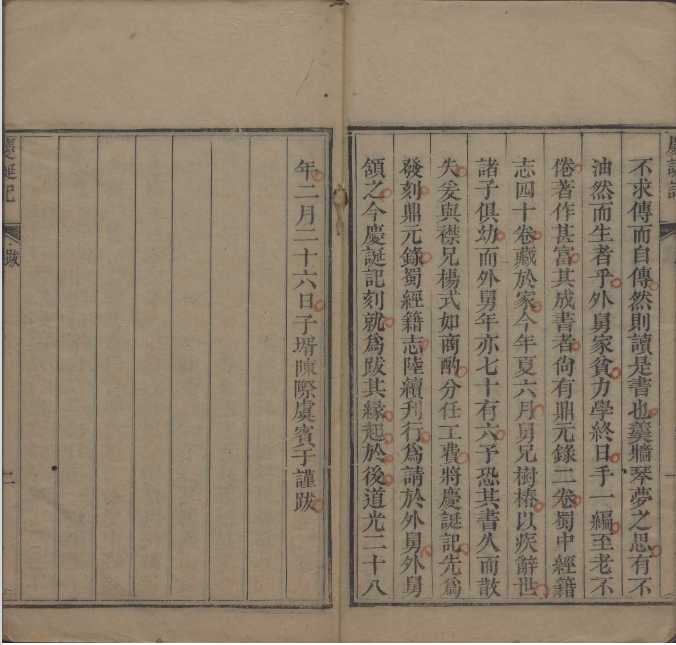 慶誕記
不求傳而自傳然則讀是書也羹牆琴夢之思有不
油然而生者乎外舅家貧力學終日手一編至老不
倦著作甚富其成書者尙有鼎元錄二卷蜀中經籍
志四十卷藏於家今年夏六月舅兄樹椿以疾辭世
諸子俱幼而外舅年亦七十有六予恐其書久而散
失爰與襟兄楊式如商酌分任工費將慶誕記先爲
發刻鼎元錄蜀經籍志陸續刊行爲請於外舅外舅
頷之今慶誕記刻就爲跋其緣起於後道光二十八
年二月二十六日子壻陳際虞賓于謹跋
慶誕記
跋
二